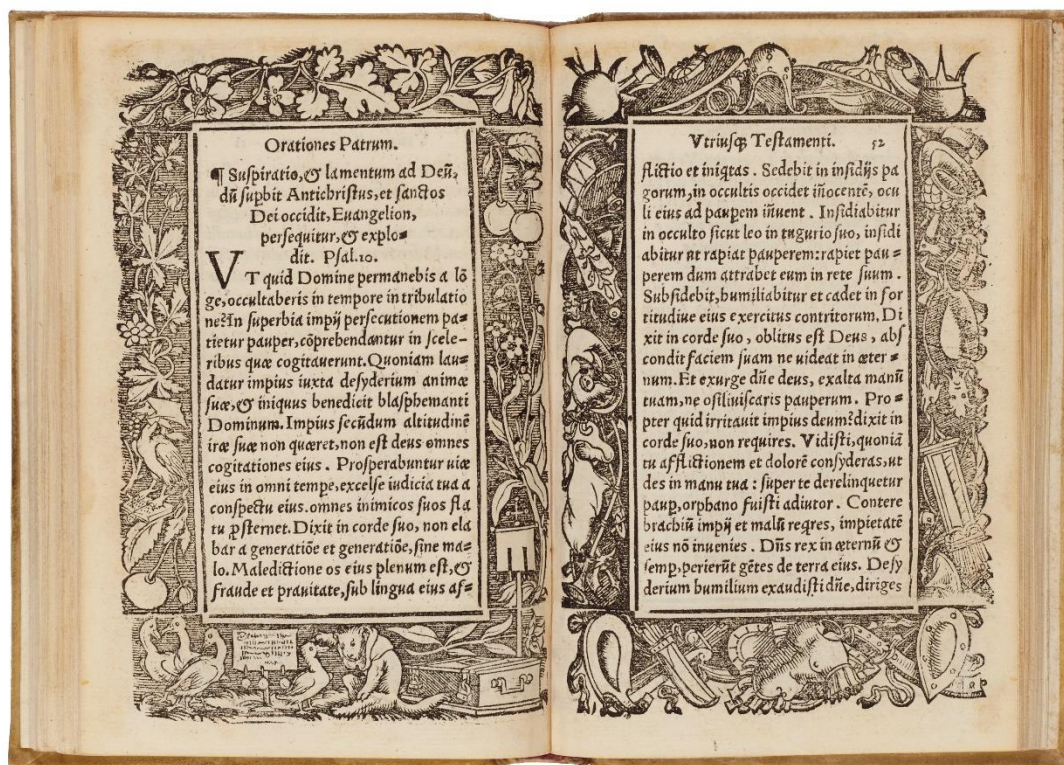 Orationes Patrum.
¶ Suspiratio, & lamentum ad Deũ,
dũ supbit Antichristus, et sanctos
Dei occidit, Euangelion,
persequitur, & explo=
dit. Psal.10.
VT quid Domine permanebis a lõ
ge, occultaberis in tempore in tribulatio
ne? In superbia impij persecutionem pa=
tietur pauper, cõprehendantur in scele-
ribus quæ cogitauerunt. Quoniam lau=
datur impius iuxta desyderium animæ
suæ, & iniquus benedicit blasphemanti
Dominum. Impius secũdum altitudinẽ
iræ suæ non quæret, non est deus omnes
cogitationes eius. Prosperabuntur uiæ
eius in omni tempe, excelse iudicia tua a
conspectu eius. omnes inimicos suos fla
tu ꝓsternet. Dixit in corde suo, non ela
bar a generatiõe et generatiõe, sine ma=
lo. Maledictione os eius plenum est, &
fraude et prauitate, sub lingua eius af=
Vtriusqꝫ Testamenti. 52
flictio et iniqtas. Sedebit in insidijs pa
gorum, in occultis occidet iñocentẽ, ocu
li eius ad paupem iñuent. Insidiabitur
in occulto sicut leo in tugurio suo, insidi
abitur ut rapiat pauperem: rapiet pau=
perem dum attrahet eum in rete suum.
Subsidebit, humiliabitur et cadet in for
titudiue eius exercitus contritorum. Di
xit in corde suo, oblitus est Deus, abs
condit faciem suam ne uideat in æter=
num. Et exurge dñe deus, exalta manũ
tuam, ne osiliuiscaris pauperum. Pro=
pter quid irritauit impius deum? dixit in
corde suo, non requires. Vidisti, quoniã
tu afflictionem et dolorẽ consyderas, ut
des in manu tua: super te derelinquetur
paup, orphano fuisti adiutor. Contere
brachiũ impij et malũ reqres, impietatẽ
eius nõ inuenies. Dñs rex in æternũ &
semp, perierũt gẽtes de terra eius. Desy
derium humilium exaudisti dñe, diriges